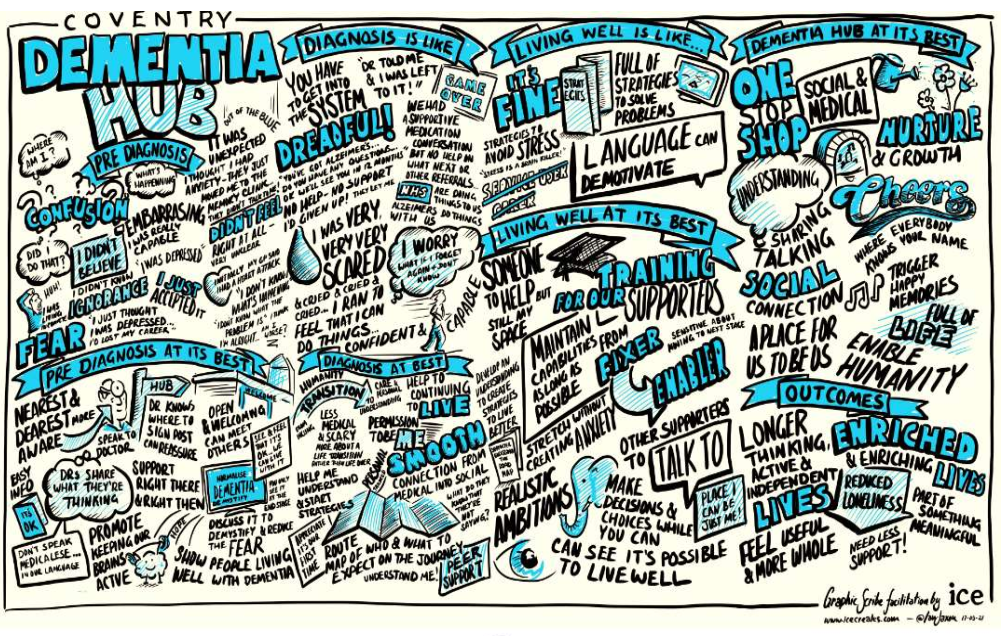 COVENTRY
DEMENTIA
HUB
PRE DIAGNOSIS
WHERE
AM I?
WHAT'S
HAPPENING
CONFUSION
DID I
DO THAT?
I DIDN'T
BELIEVE
EMBARRASING
I WAS REALLY
CAPABLE
"I WAS DEPRESSED"
HUH!
I DIDN'T KNOW
IGNORANCE
I JUST
ACCEPTED
IT
FEAR
"I JUST THOUGHT
I WAS DEPRESSED...
I'D LOST MY CAREER"
OUT OF THE BLUE
IT WAS
UNEXPECTED
THOUGHT I HAD
ANXIETY - THEY JUST
MOVED ME TO THE
MEMORY CLINIC...
DIDN'T FEEL
RIGHT AT ALL -
VERY UNCLEAR
DIAGNOSIS IS LIKE
YOU HAVE
TO GET INTO
THE SYSTEM
"DR TOLD ME
& I WAS LEFT
TO IT!"
GAME
OVER
DREADFUL!
"YOU'VE GOT ALZEIMERS...
DO YOU HAVE ANY QUESTIONS...
WE'LL SEE YOU IN 12 MONTHS"
NO HELP - NO SUPPORT
I'D GIVEN UP! THEY LET ME
WE HAD
A SUPPORTIVE
MEDICATION
CONVERSATION
BUT NO HELP ON
WHAT NEXT OR
OTHER REFERRALS...
NHS ARE DOING
THINGS TO US
ALZEIMERS DO THINGS
WITH US
I WAS VERY,
VERY VERY
SCARED
& CRIED & CRIED &
CRIED... & I RAN TO
FEEL THAT I CAN
DO THINGS...
CONFIDENT &
CAPABLE
I WORRY
WHAT IF I FORGET
AGAIN & DON'T
KNOW
LIVING WELL IS LIKE...
IT'S
FINE
STRAT
EGIES
FULL OF
STRATEGIES
TO SOLVE
PROBLEMS
STRATEGIES TO
AVOID STRESS
"STRESS IS A BRAIN KILLER"
LANGUAGE CAN
DEMOTIVATE
LIVING WELL AT ITS BEST
SOMEONE
TO HELP BUT
STILL MY
SPACE
TRAINING
FOR OUR SUPPORTERS
MAINTAIN
CAPABILITIES
AS LONG AS
POSSIBLE
FROM
FIXER
TO
ENABLER
SENSITIVE ABOUT
MOVING TO NEXT STAGE
STRETCH WITHOUT
CREATING ANXIETY
OTHER SUPPORTERS
TO TALK TO
REALISTIC
AMBITIONS
MAKE
DECISIONS &
CHOICES WHILE
YOU CAN
PLACE I
CAN BE
JUST ME!
CAN SEE IT'S POSSIBLE
TO LIVE WELL
DEMENTIA HUB AT ITS BEST
ONE
STOP
SHOP
SOCIAL &
MEDICAL
NURTURE
& GROWTH
UNDERSTANDING
Cheers
WHERE EVERYBODY
KNOWS YOUR NAME
& SHARING
TALKING
SOCIAL
CONNECTION
TRIGGER
HAPPY
MEMORIES
A PLACE FOR
US TO BE US
FULL OF
LIFE
ENABLE
HUMANITY
OUTCOMES
LONGER
THINKING,
ACTIVE &
INDEPENDENT
LIVES
ENRICHED
& ENRICHING
LIVES
REDUCED
LONELINESS
PART OF
SOMETHING
MEANINGFUL
FEEL USEFUL
& MORE WHOLE
NEED LESS
SUPPORT!
PRE DIAGNOSIS AT ITS BEST
NEAREST &
DEAREST MORE
AWARE
SPEAK TO
DOCTOR
HUB
DR KNOWS
WHERE TO
SIGN POST
CAN REASSURE
WELCOME
OPEN
& WELCOMING
CAN MEET
OTHERS
EASY
INFO
IT'S
OK
DRS SHARE
WHAT THEY'RE
THINKING
SUPPORT
RIGHT THERE
& RIGHT THEN
NORMALISE
DEMENTIA
DON'T SPEAK
MEDICALESE...
IN OUR LANGUAGE
PROMOTE
KEEPING OUR
BRAINS
ACTIVE
DISCUSS IT TO
DEMYSTIFY & REDUCE
THE FEAR
SHOW PEOPLE LIVING
WELL WITH DEMENTIA
DIAGNOSIS AT BEST
HUMANITY
TRANSITION
LESS
MEDICAL
& SCARY
MORE ABOUT A
LIFE TRANSITION
RATHER THAN LIFE OVER
HELP TO
CONTINUING
TO LIVE
PERMISSION
TO BE ME
PERSONAL
SMOOTH
CONNECTION FROM
MEDICAL INTO SOCIAL
HELP ME
UNDERSTAND
& START
STRATEGIES
ROUTE
MAP OF WHO & WHAT TO
EXPECT ON THE JOURNEY
UNDERSTAND ME!
PEER
SUPPORT
Graphic Scribe facilitation by ice
www.icecreates.com